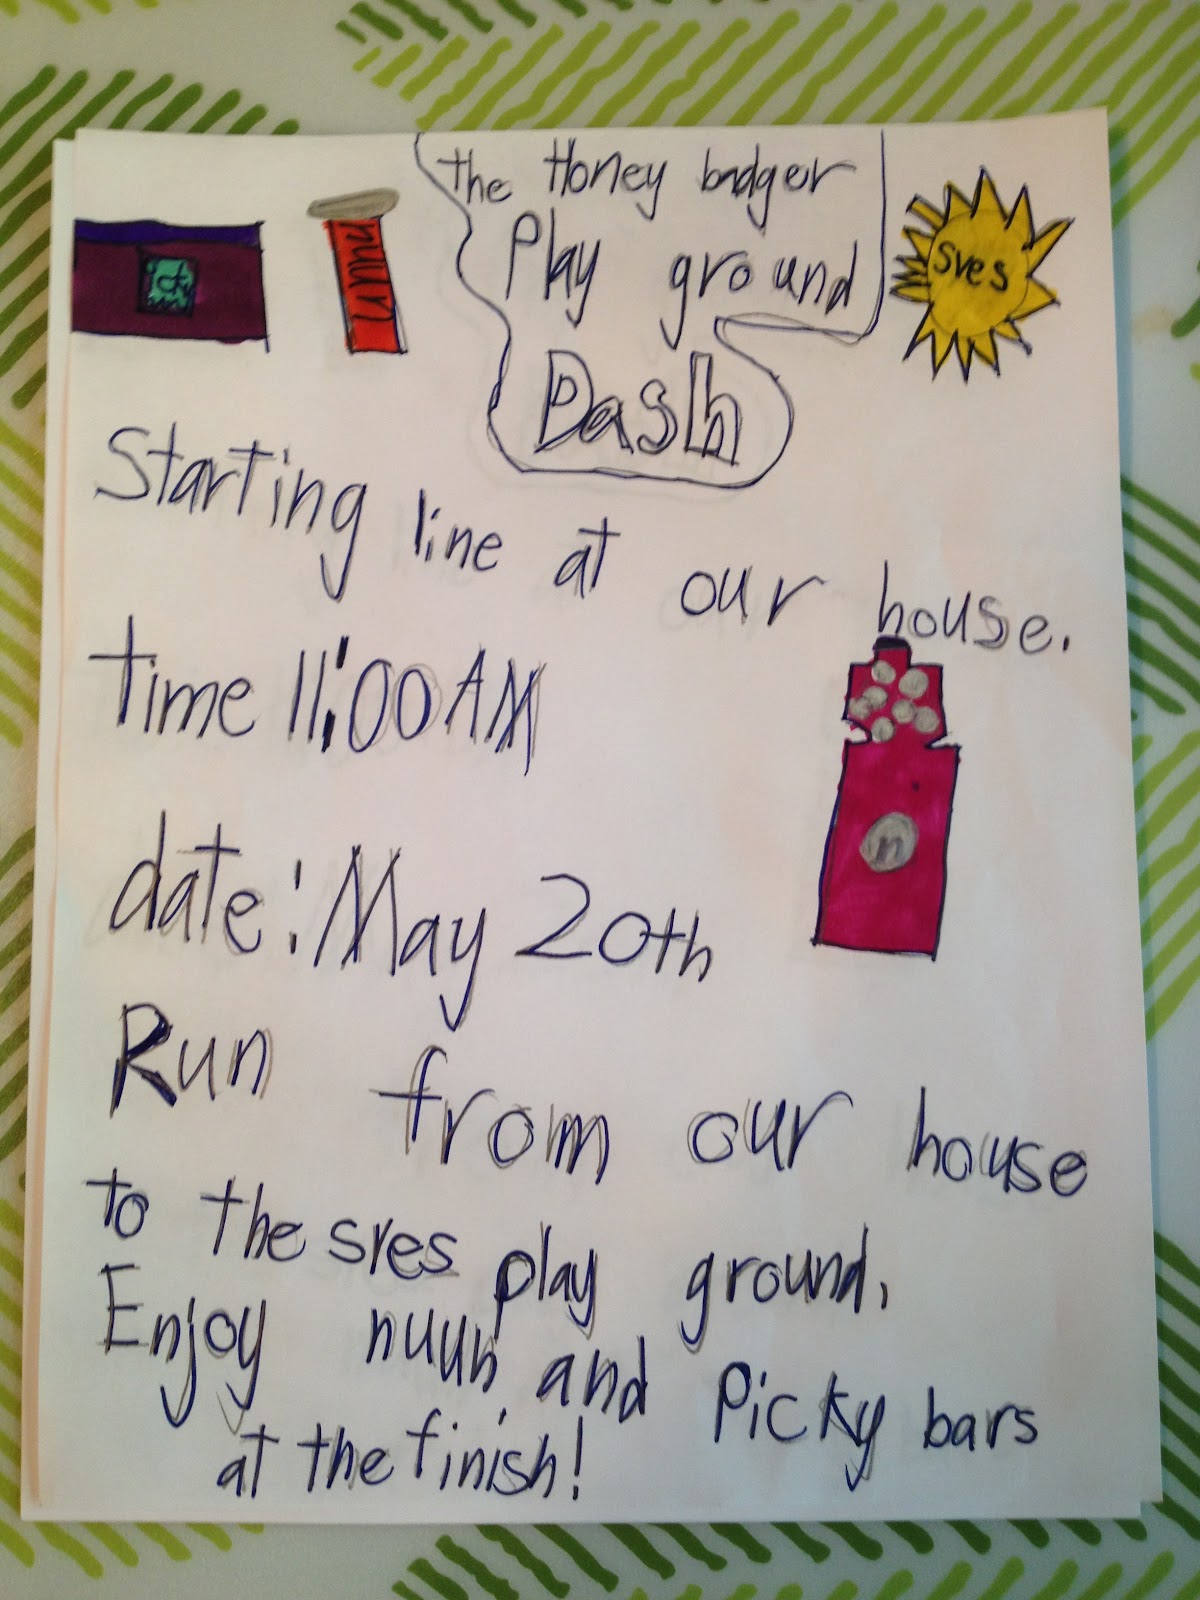 the Honey badger
Play ground
Dash
nuun
Sres
Starting line at our house.
time 11:00 AM
date: May 20th
n
Run from our house
to the sres play ground.
Enjoy nuun and Picky bars
at the finish!